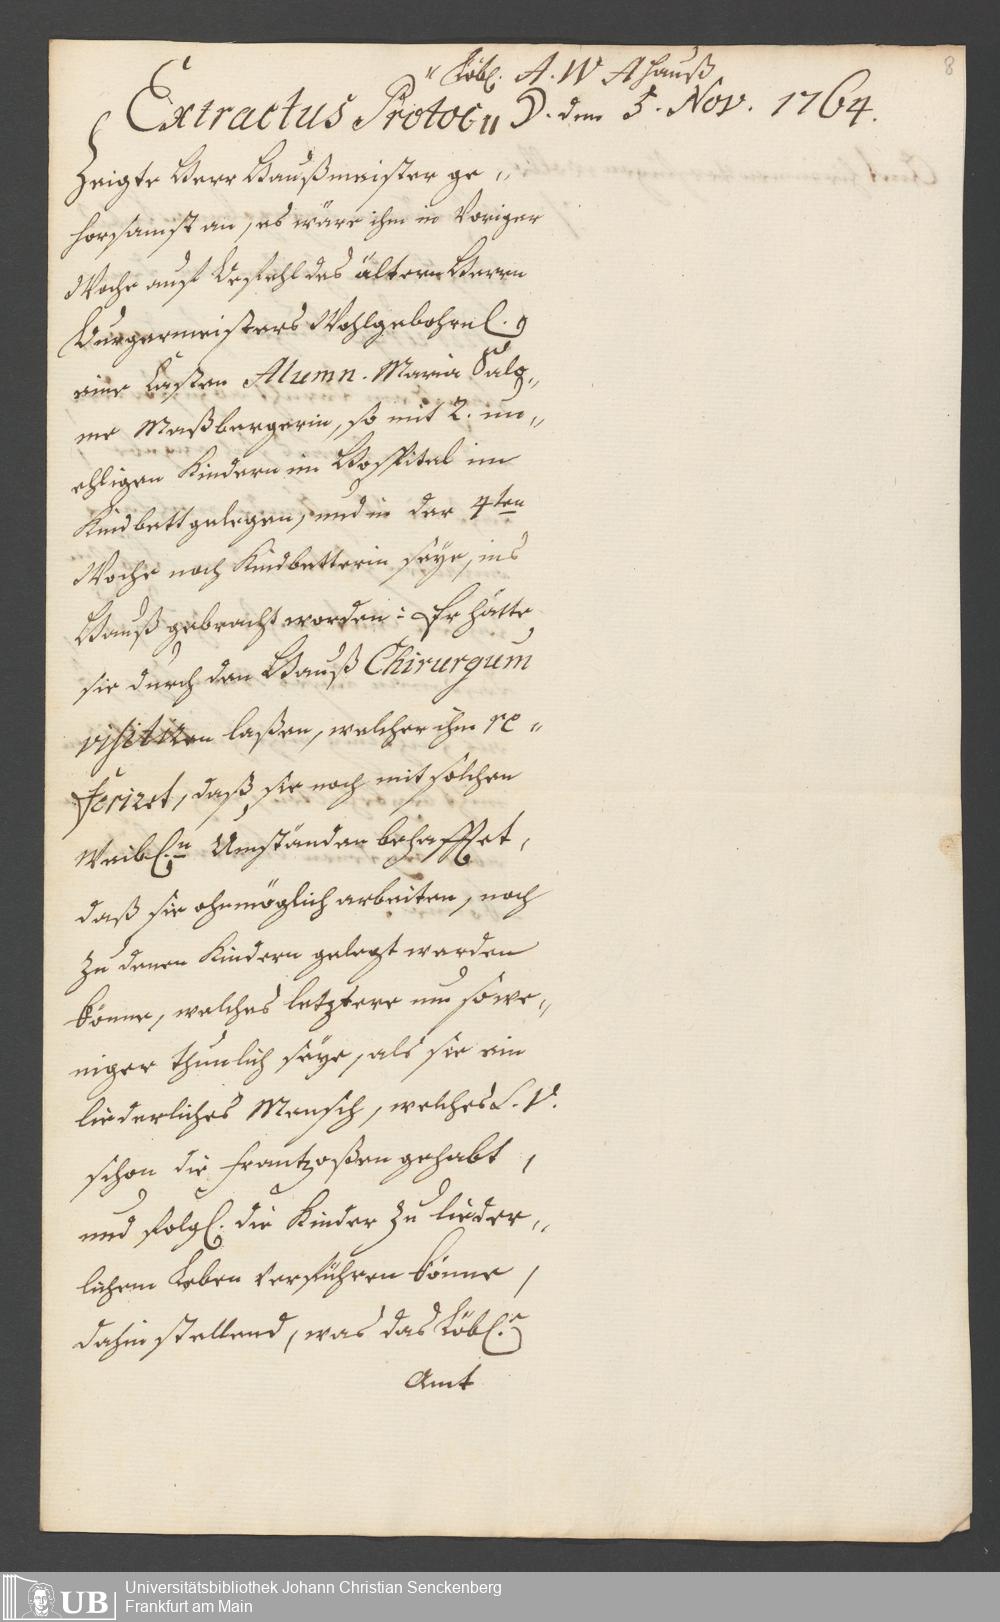 8
" Löbl. A. W Ahauß
Extractus Protoc. D. dem 5. Nov. 1764.
Zeigte Herr Haußmeister ge„
horsamst an, es wäre ihm in voriger
Woche auf Befehl des ältern Herrn
Burgermeisters Wohlgebohrnl.
eine Casten Alumn. Maria Salo„
me Maßbergerin, so mit 2. un„
ehligen Kindern im Hospital im
Kindbett gelegen, und in der 4ten
Woche noch Kindbetterin seye, ins
Hauß gebracht worden: Er hätte
sie durch den Hauß Chirurgum
visitiren laßen, welcher ihm re„
feriret, daß sie noch mit solchen
Weibl.n Umständen behafftet,
daß sie ohnmöglich arbeiten, noch
zu denen Kindern gelegt werden
könne, welches letztere um sowe„
niger thunlich seye, als sie ein
liederliches Mensch, welches S. V.
schon die Frantzoßen gehabt,
und folgl. die Kinder zu lieder„
lichem Leben verführen könne,
dahin stellend, was das Löbl.e
Amt
UB
Universitätsbibliothek Johann Christian Senckenberg
Frankfurt am Main